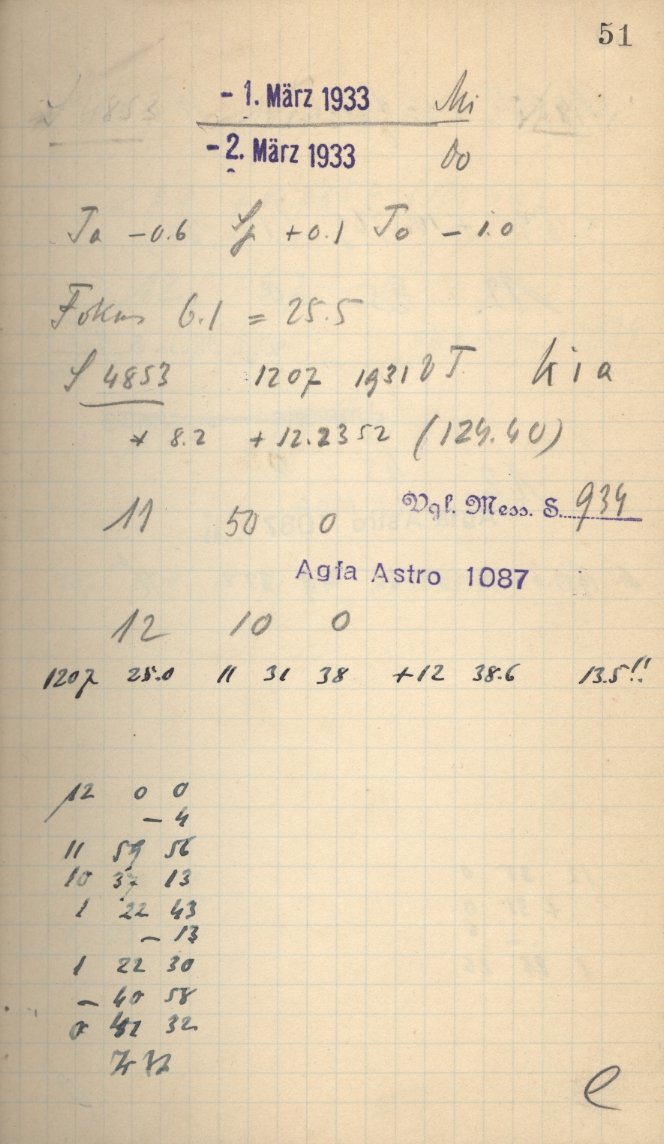 51
- 1. März 1933 Mi
- 2. März 1933 Do
Ta -0.6 +0.1 To - 1.0
Fokus 6.1 = 25.5
S 4853 1207 1931 VT Kia
* 8.2 + 12.2352 (124.40)
11 50 0 Vgl. Mess. S. 934
Agfa Astro 1087
12 10 0
1207 25.0 11 31 38 +12 38.6 13.5!!
12 0 0
- 4
11 59 56
10 37 13
1 22 43
- 13
1 22 30
- 40 58
0 41 32
e